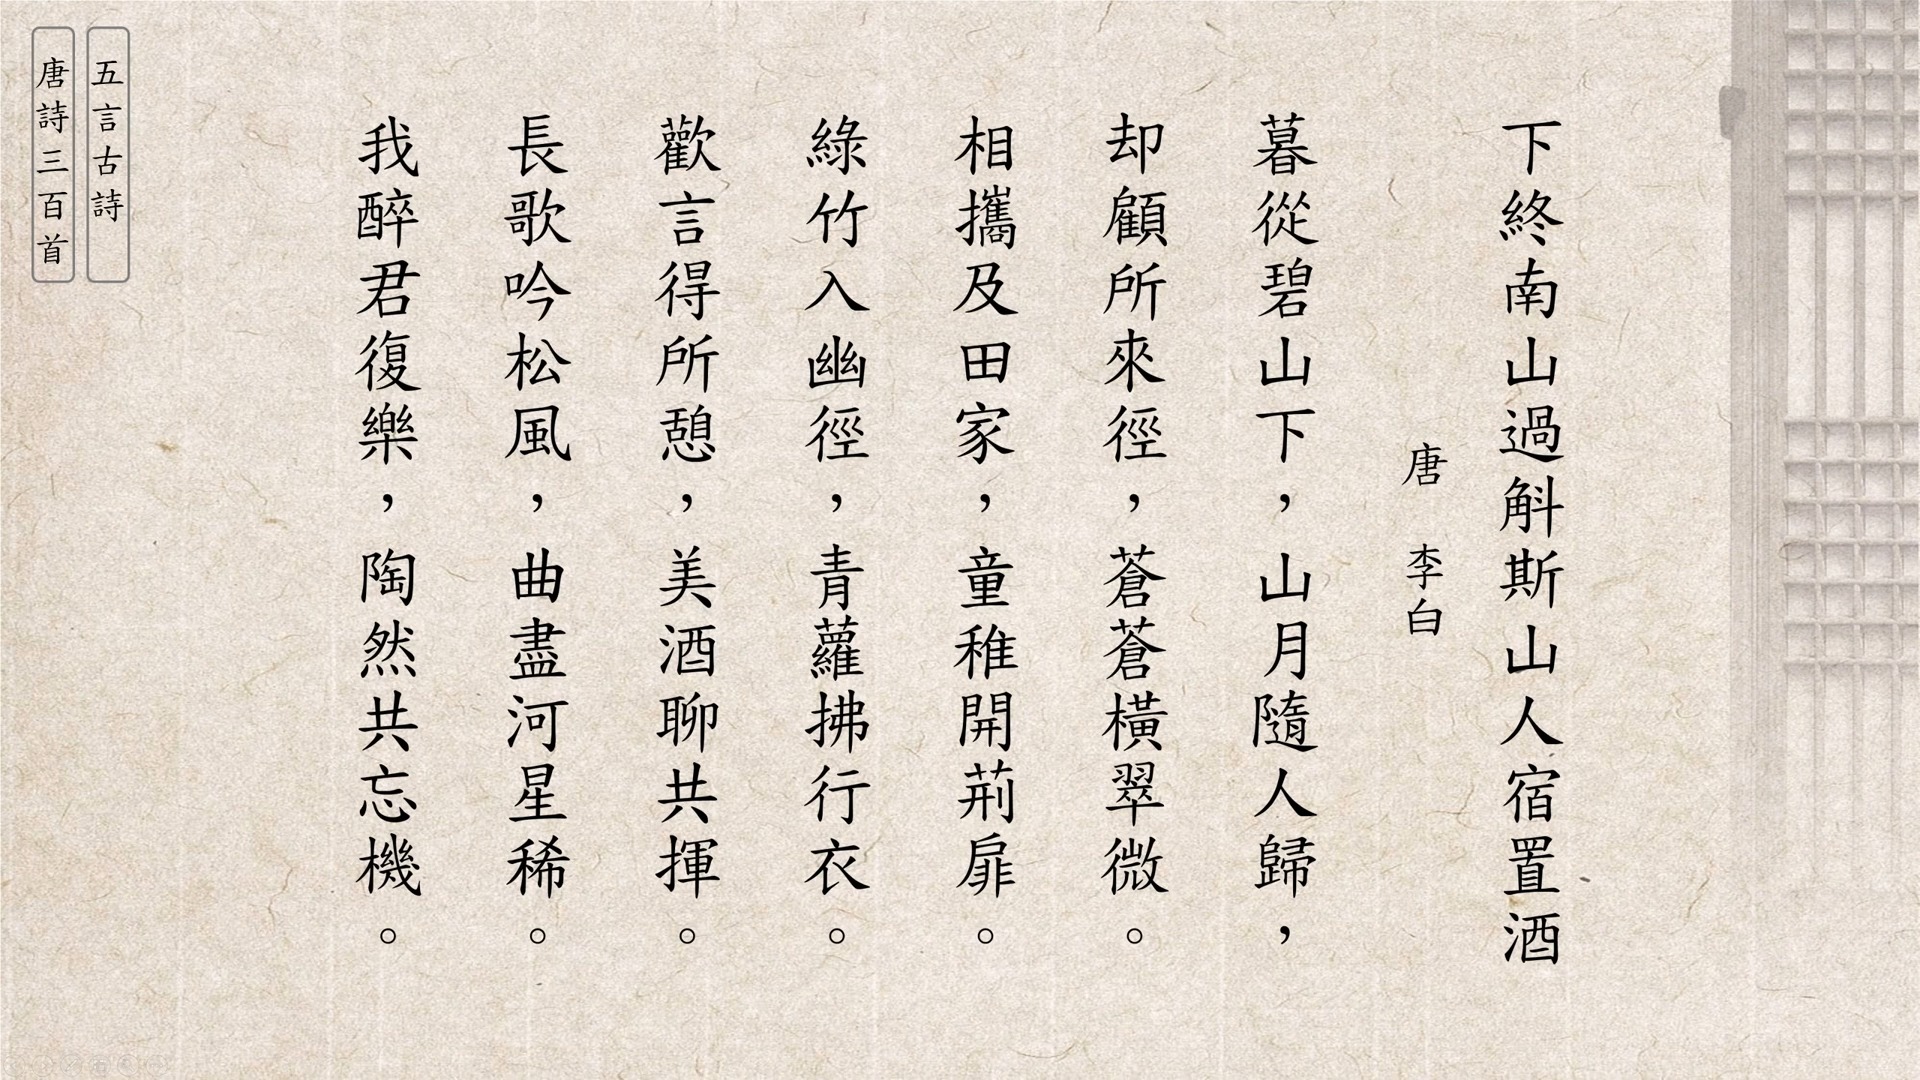 下終南山過斛斯山人宿置酒
唐 李白
暮從碧山下，山月隨人歸，
却顧所來徑，蒼蒼橫翠微。
相攜及田家，童稚開荊扉。
綠竹入幽徑，青蘿拂行衣。
歡言得所憩，美酒聊共揮。
長歌吟松風，曲盡河星稀。
我醉君復樂，陶然共忘機。
五言古詩
唐詩三百首